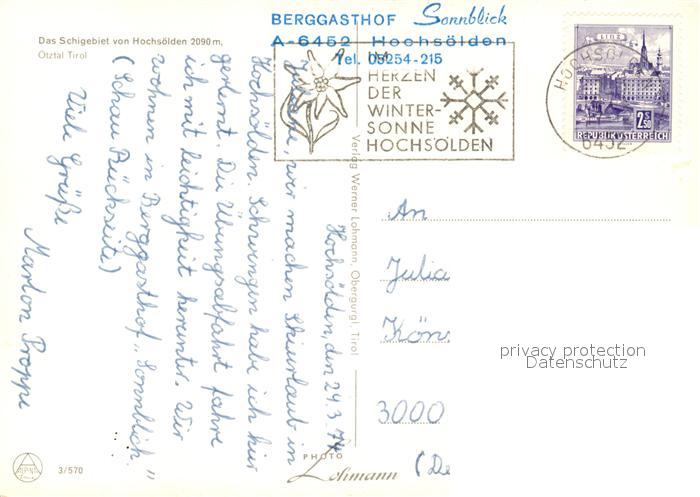 Das Schigebiet von Hochsölden 2090 m,
Ötztal Tirol
BERGGASTHOF Sonnblick
A-6452 Hochsölden
Tel. 05254-215
IM
HERZEN
DER
WINTER-
SONNE
HOCHSÖLDEN
LINZ
2.50
REPUBLIK ÖSTERREICH
6452
Hochsölden, den 24.3.74
wir machen Skiurlaub in
Hochsölden. Schwingen habe ich hier
gelernt. Die Übungsabfahrt fahre
ich mit Leichtigkeit herunter. Wir
wohnen in Berggasthof „Sonnblick."
(Schau Rückseite)
Viele Grüße
Marlon Proppe
Verlag Werner Lohmann, Obergurgl, Tirol
An
Julia
Kön
3000
(De
privacy protection
Datenschutz
3/570
PHOTO
Lohmann